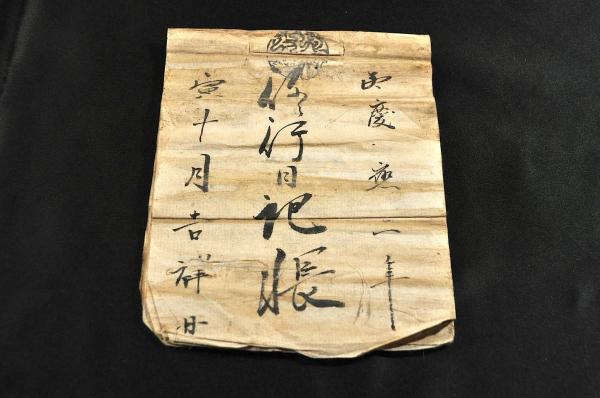 慶應二年
修行日記帳
寅十月吉祥日